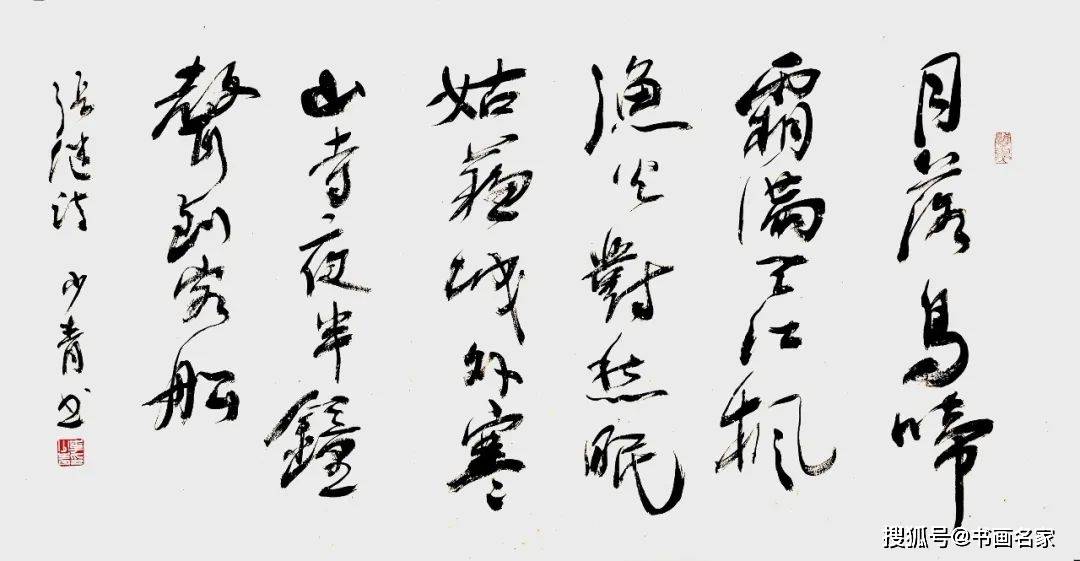 月落烏啼
霜滿天江楓
漁火對愁眠
姑蘇城外寒
山寺夜半鐘
聲到客船
张继诗 少青书
搜狐号@书画名家